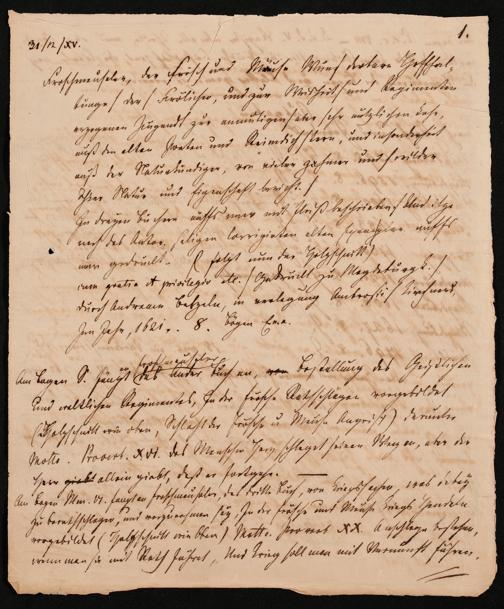 31/12/XV. 1.
Froschmeuseler, der Frösch und Mäuse Wunderbare Hoffhal-
tunge / der Frölichen, und zur Weißheit und Regimenten
erzogenen Jugendt zur anmutigen aber sehr nützlichen Lehr,
auß den alten Poeten und Reimdichtern, und insonderheit
auß der Naturkündiger, von vieler zahmer und wilder
Thier Natur und Eigenschafft bericht. /
In dreyen Büchern auffs new mit fleiß beschrieben / Und itzo
nach des Autor. seligen Corrigirten alten Exemplar auffs
new gedruckt. (folgt nun der Holzschnitt)
cum gratia et privilegio etc. / Gedruckt zu Magdeburgk. /
durch Andream Betzeln, in verlegung Ambrosii Kirchners,
Im Jahr, 1621. 8. Bogen
Am Bogen S. fängt des Froschmeuselers Ander Buch an, von Bestellung des Geistlichen
und weltlichen Regimentes, In der Frösche Rathschlagen vorgebildet
(Holzschnitt wie oben, Schlacht der Frösche u Mäuse Angriff) darunter
Motto. Proverb. XVI. des Menschen Herz schleget seinen Weg an, aber der
Herr allein giebt, daß er fortgehe.
Am Bogen Mm. VI. fängt an Froschmeuseler, das dritte Buch, von Kriegssachen, was dabey
zu berathschlagen, und vorzunehmen sey, In der Frösche und Mäuse Kriegs Händeln
vorgebildet (Holzschnitt wie Oben) Motto. Proverb XX. Anschlege bestehen,
wenn man sie mit Rath führet, Und Krieg soll man mit Vernunft führen.